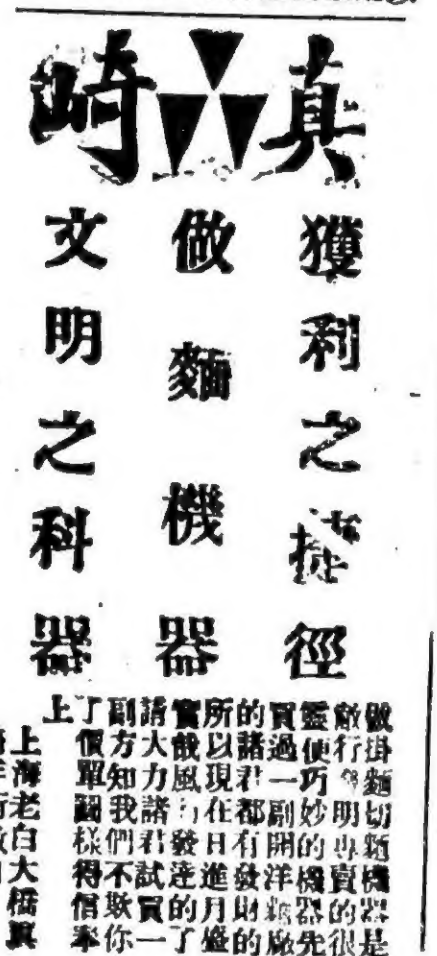 真崎
獲利之捷徑
做麵機器
文明之科器
做掛麵切麵機器是
敝行發明專賣的很
靈便巧妙的機器先
買過一副開洋麵廠
的諸君都有發財的
所以現在日進月盛
實 風 發達的了
請大力諸君試買一
副方知我們不欺你
了價單圖樣得信奉
上
上海老白大橋真